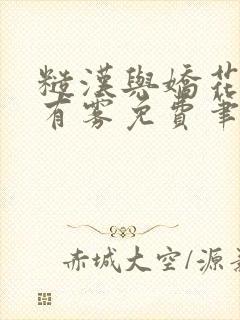 糙漢與嬌花
有霧免費筆
赤城大空/源